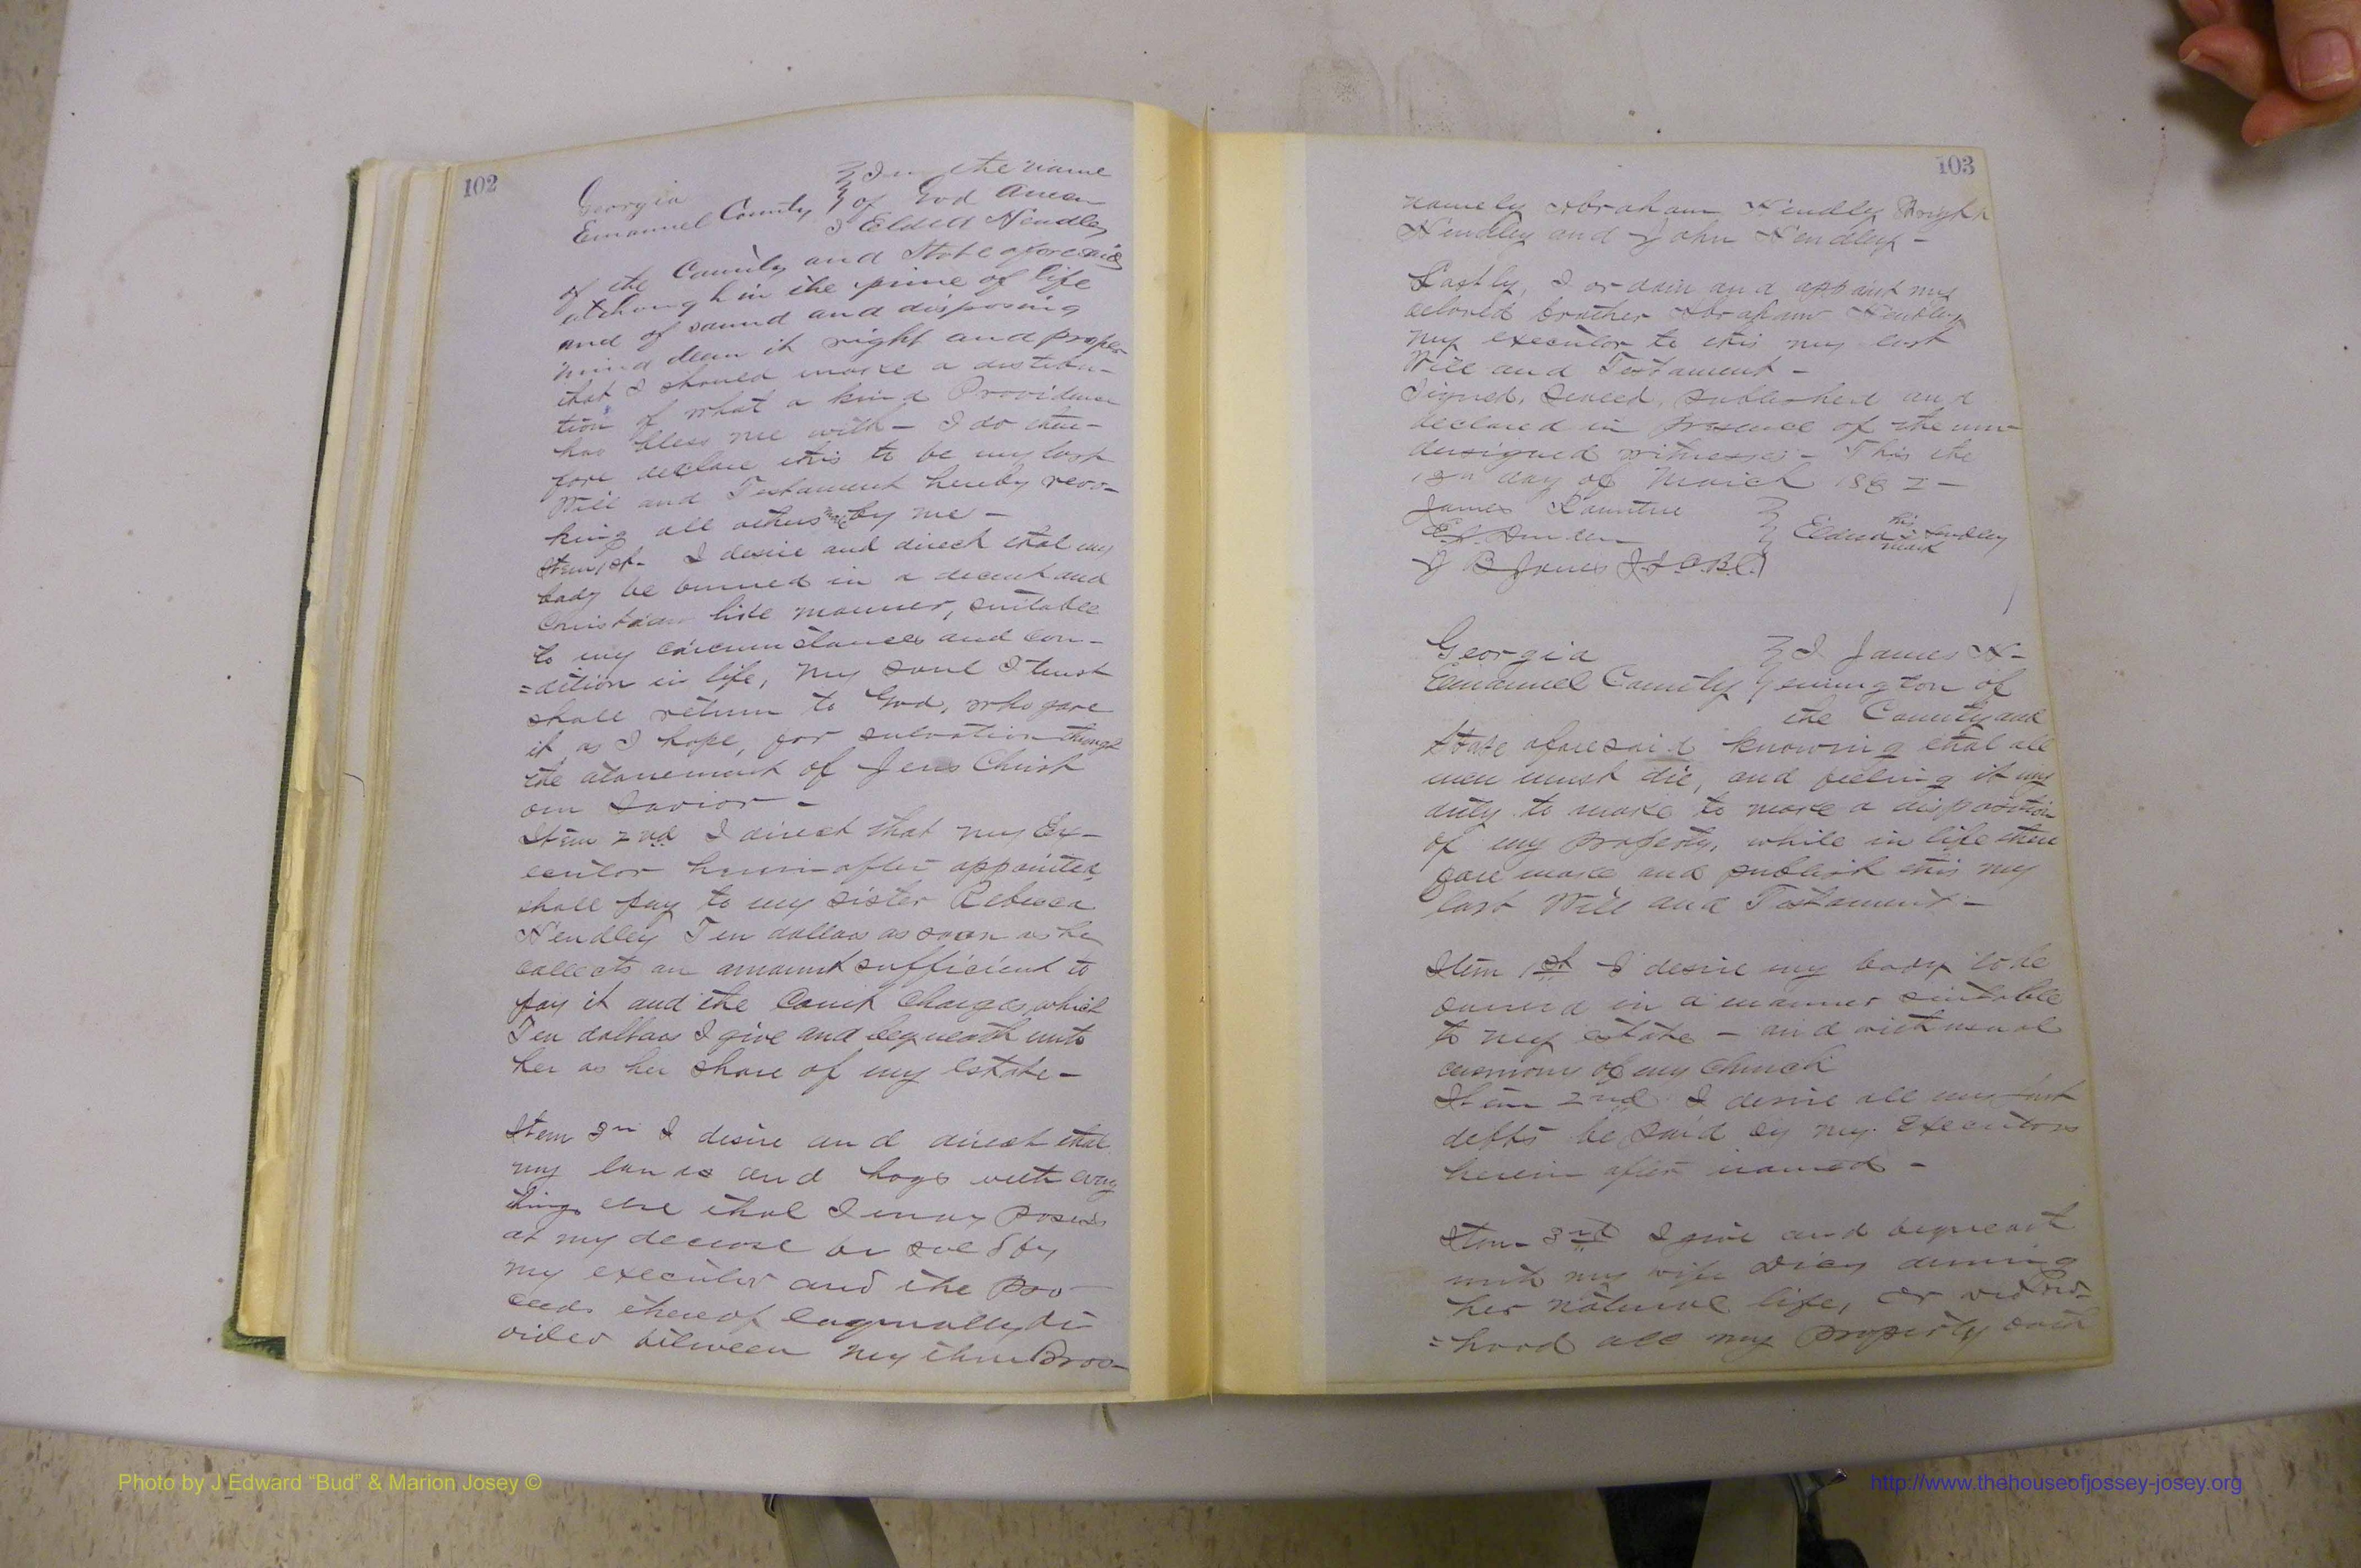 102
Georgia
Emanuel County
In the name
of God Amen
I Elded Hendley
of the County and State aforesaid
althoug h in the prime of life
and of sound and disposing
mind deem it right and proper
that I should make a distribu-
tion of what a kind Providence
has bless me with – I do there-
fore declare this to be my last
Will and Testament hereby revo-
king all others made by me –
Item 1st. I desire and direct that my
body be burried in a decent and
Christian like manner, suitable
to my circumstances and con-
=dition in life, My soul I trust
shall return to God, who gave
it as I hope, for salvation through
the atonement of Jesus Christ
our Savior –
Item 2nd I direct that my Ex-
ecutor herein after appointed,
shall pay to my sister Rebecca
Hendley Ten dollars as soon as he
collects an amount sufficient to
pay it and the Court Charges, which
Ten dollars I give and bequeath unto
her as her share of my estate –
Item 3rd I desire and direct that
my lands and hogs with every
thing else that I may posess
at my decease be sold by
my executor and the Pro-
ceeds thereof equally di
vided between my three Bros–
103
namely Abraham Hendley Wright
Hendley and John Hendley –
Lastly, I ordain and appoint my
beloved brother Abraham Hendley
my executor to this my last
Will and Testament –
Signed, Sealed, published and
declared in presence of the un-
dersigned witnesses – This the
day of March
James Rountree
Elded his Hendley
mark
J B Jones J.I.C.B.C.
Georgia
Emanuel County
I James H-
emington of
the County and
State aforesaid knowing that all
men must die, and feeling it my
duty to make to make a disposition
of my property, while in life there
fore make and publish this my
last Will and Testament –
Item 1st I desire my body to be
buried in a manner suitable
to my estate – and with usual
ceremony of my Church
Item 2nd I desire all my just
debts be paid by my Executors
herein after named –
Item 3rd I give and bequeath
unto my wife Dicy during
her natural life, or widow-
=hood all my property both
Photo by J Edward “Bud” & Marion Josey ©
http://www.thehouseofjossey-josey.org